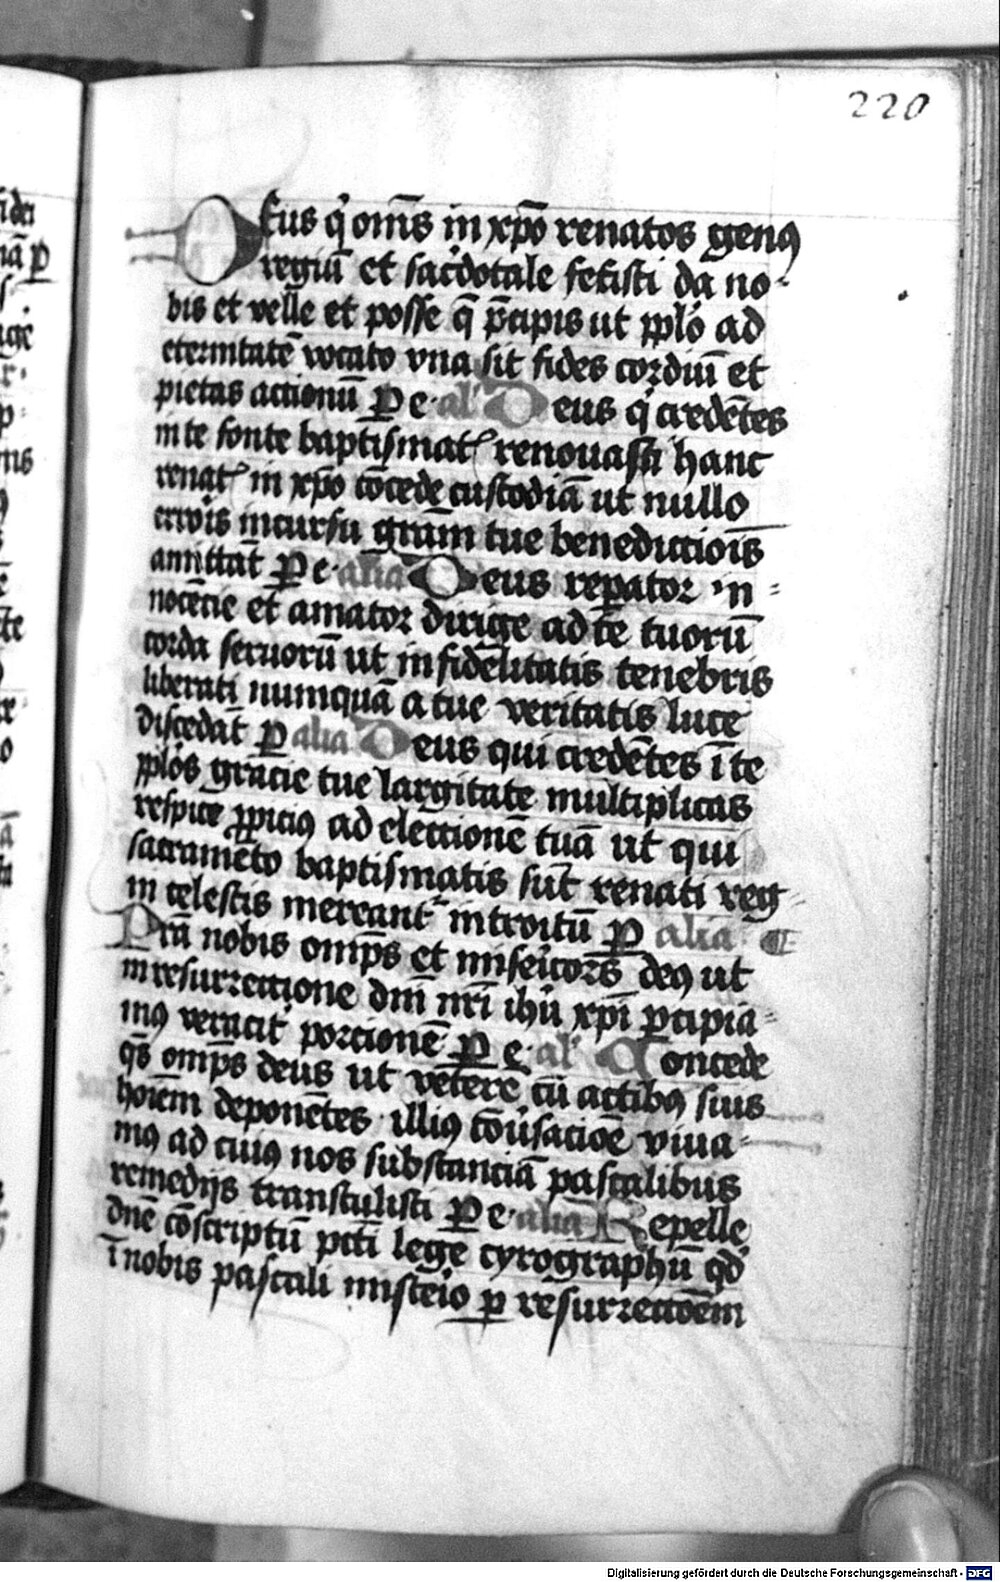 220
Deus qͥ om̅s in xp̅o renatos genꝰ
regiū et sac̓dotale fecisti da no-
bis et velle et posse q̄ p̄cipis ut pp̅lo ad
et̓nitatē vocato vna sit fides cordiū et
pietas actionū P e al̓ Deus qͥ credētes
in te fonte baptismatꝭ renouasti hanc
renatꝭ in xp̅o cōcede custodiā ut nullo
erroris incursu gr̅am tue benedictiōis
amittāt P e alia Deus repator in-
nocēcie et amator dirige ad te tuorū
corda seruorū ut infidelitatis tenebris
liberati numquā a tue veritatis luce
discedāt P alia Deus qui credētes ī te
pp̅los gracie tue largitate multiplicas
respice ꝓpiciꝰ ad electionē tuā ut qui
sacramēto baptismatis sūt renati reg-
ni celestis mereant᷑ introitū P alia
Pr̅a nobis omp̅s et mise̓icors deꝰ ut
in resurrectione dn̅i nr̅i ih̅u xp̅i ꝑcipia-
mꝰ veracit̓ porcionē P e al̓ Concede
q̅s omp̅s deus ut veterē cū actibꝰ suis
hoīem deponētes illiꝰ cōu̓sacioē viua-
mꝰ ad cuiꝰ nos substanciā pascalibus
remedijs transtulisti P e alia Repelle
dn̅e cōscriptū pc̅ti lege cyrographū qd̓
ī nobis pascali miste̓io ꝑ resurrectōem
Digitalisierung gefördert durch die Deutsche Forschungsgemeinschaft - DFG